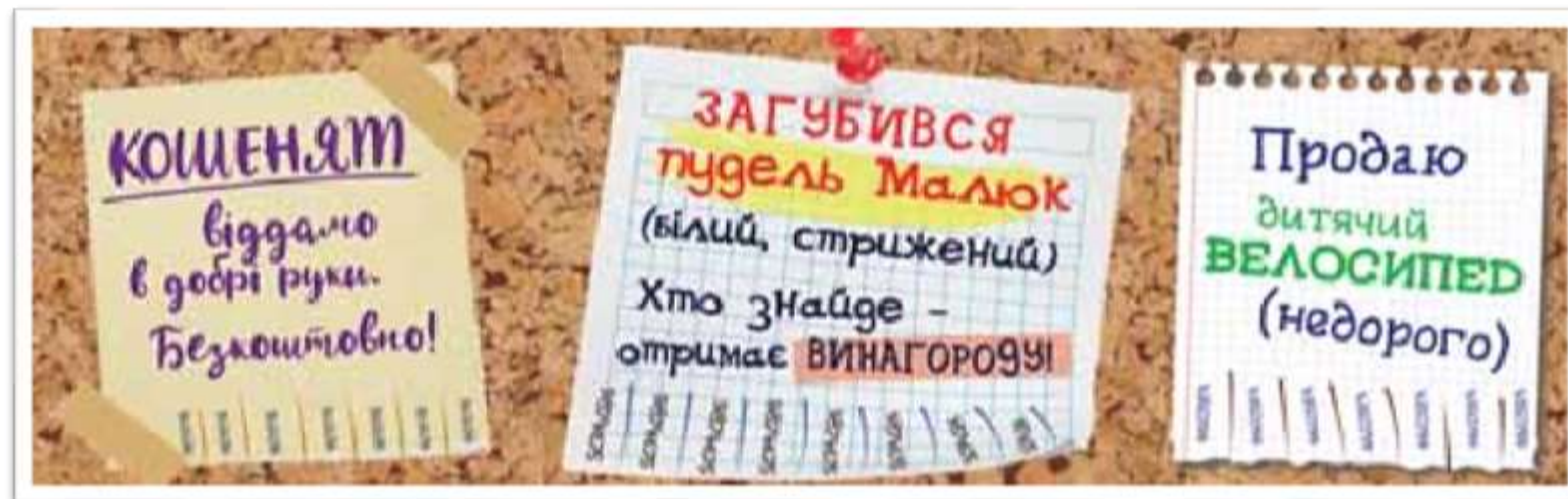 КОШЕНЯТ
віддамо
в добрі руки.
Безкоштовно!
ЗАГУБИВСЯ
пудель Малюк
(білий, стрижений)
Хто знайде –
отримає ВИНАГОРОДУ!
Продаю
дитячий
ВЕЛОСИПЕД
(недорого)